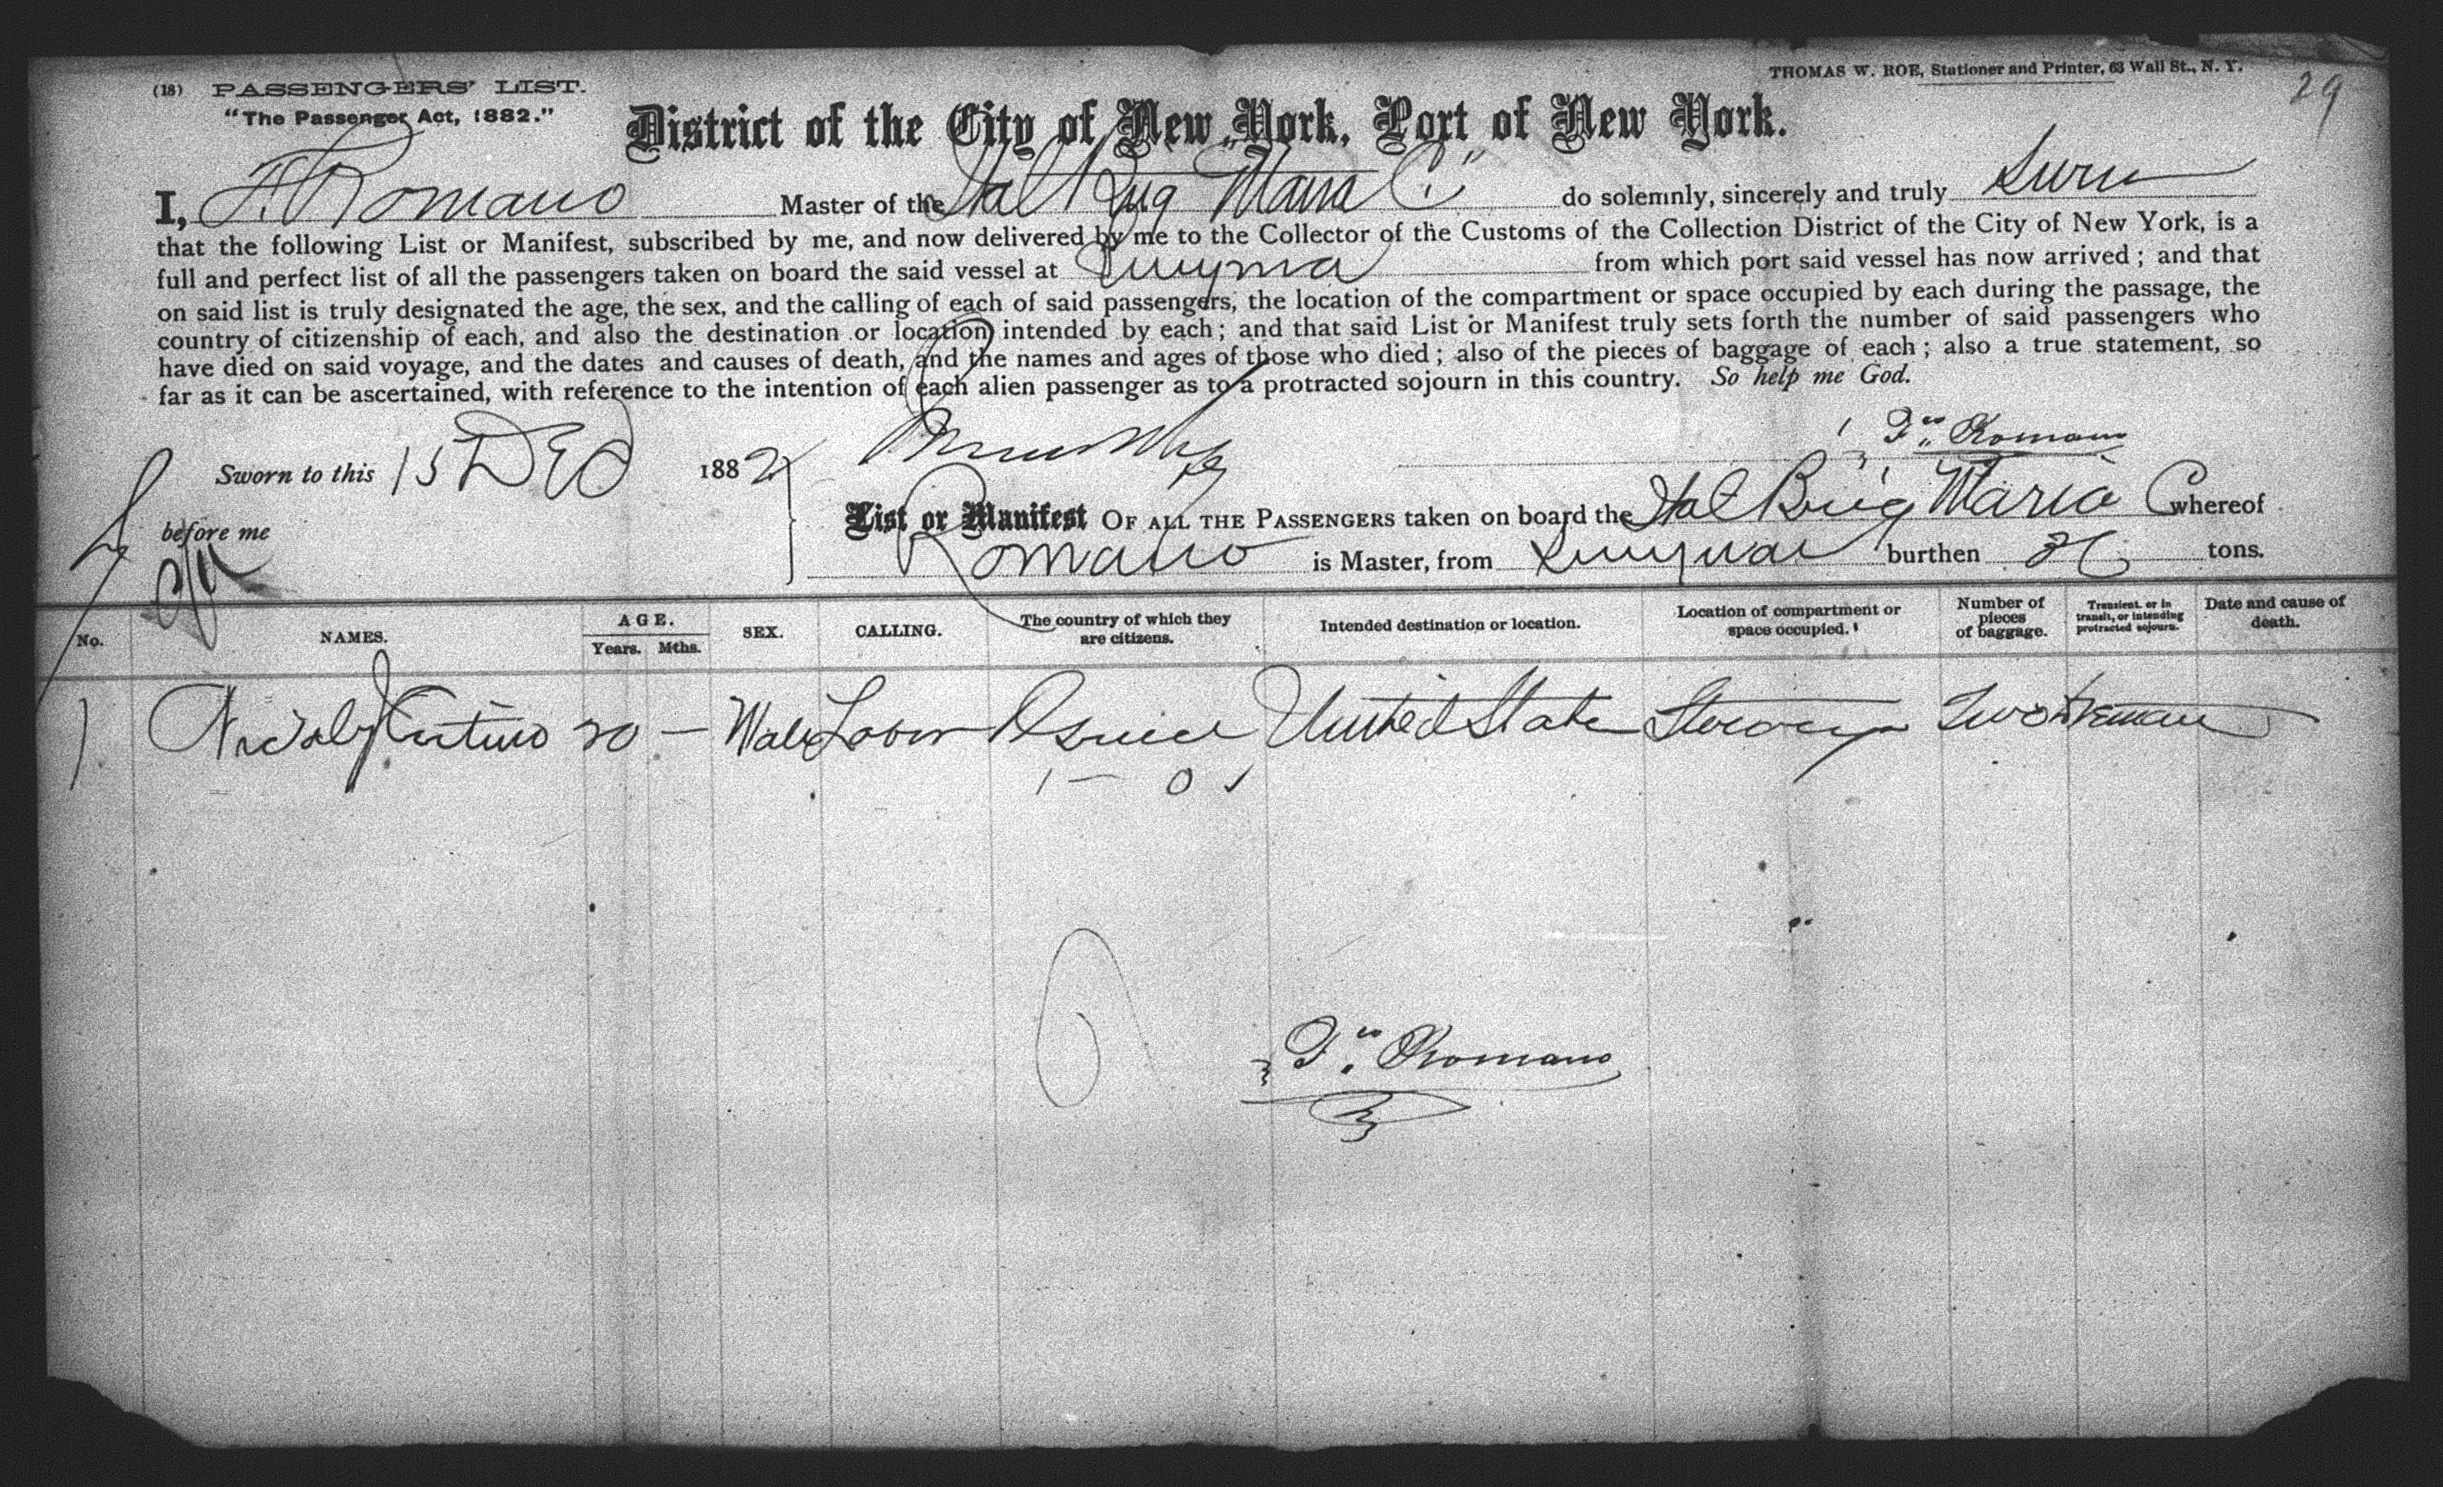 (18) PASSENGERS' LIST.
THOMAS W. ROE, Stationer and Printer, 63 Wall St., N. Y.
29
"The Passenger Act, 1882."
District of the City of New York, Port of New York.
I, F. Romano Master of the Ital Brig "Maria C." do solemnly, sincerely and truly
that the following List or Manifest, subscribed by me, and now delivered by me to the Collector of the Customs of the Collection District of the City of New York, is a
full and perfect list of all the passengers taken on board the said vessel at from which port said vessel has now arrived; and that
on said list is truly designated the age, the sex, and the calling of each of said passengers, the location of the compartment or space occupied by each during the passage, the
country of citizenship of each, and also the destination or location intended by each; and that said List or Manifest truly sets forth the number of said passengers who
have died on said voyage, and the dates and causes of death, and the names and ages of those who died; also of the pieces of baggage of each; also a true statement, so
far as it can be ascertained, with reference to the intention of each alien passenger as to a protracted sojourn in this country. So help me God.
Romano
Sworn to this 15 DEC 1882
before me
List or Manifest OF ALL THE PASSENGERS taken on board the Ital Brig Maria C whereof
Romano is Master, from burthen tons.
No. NAMES. AGE. Years. Mths. SEX. CALLING. The country of which they are citizens. Intended destination or location. Location of compartment or space occupied. Number of pieces of baggage. Transient, or in transit, or intending protracted sojourn. Date and cause of death.
1 20 — Male United State Two
1 — 0
Romano